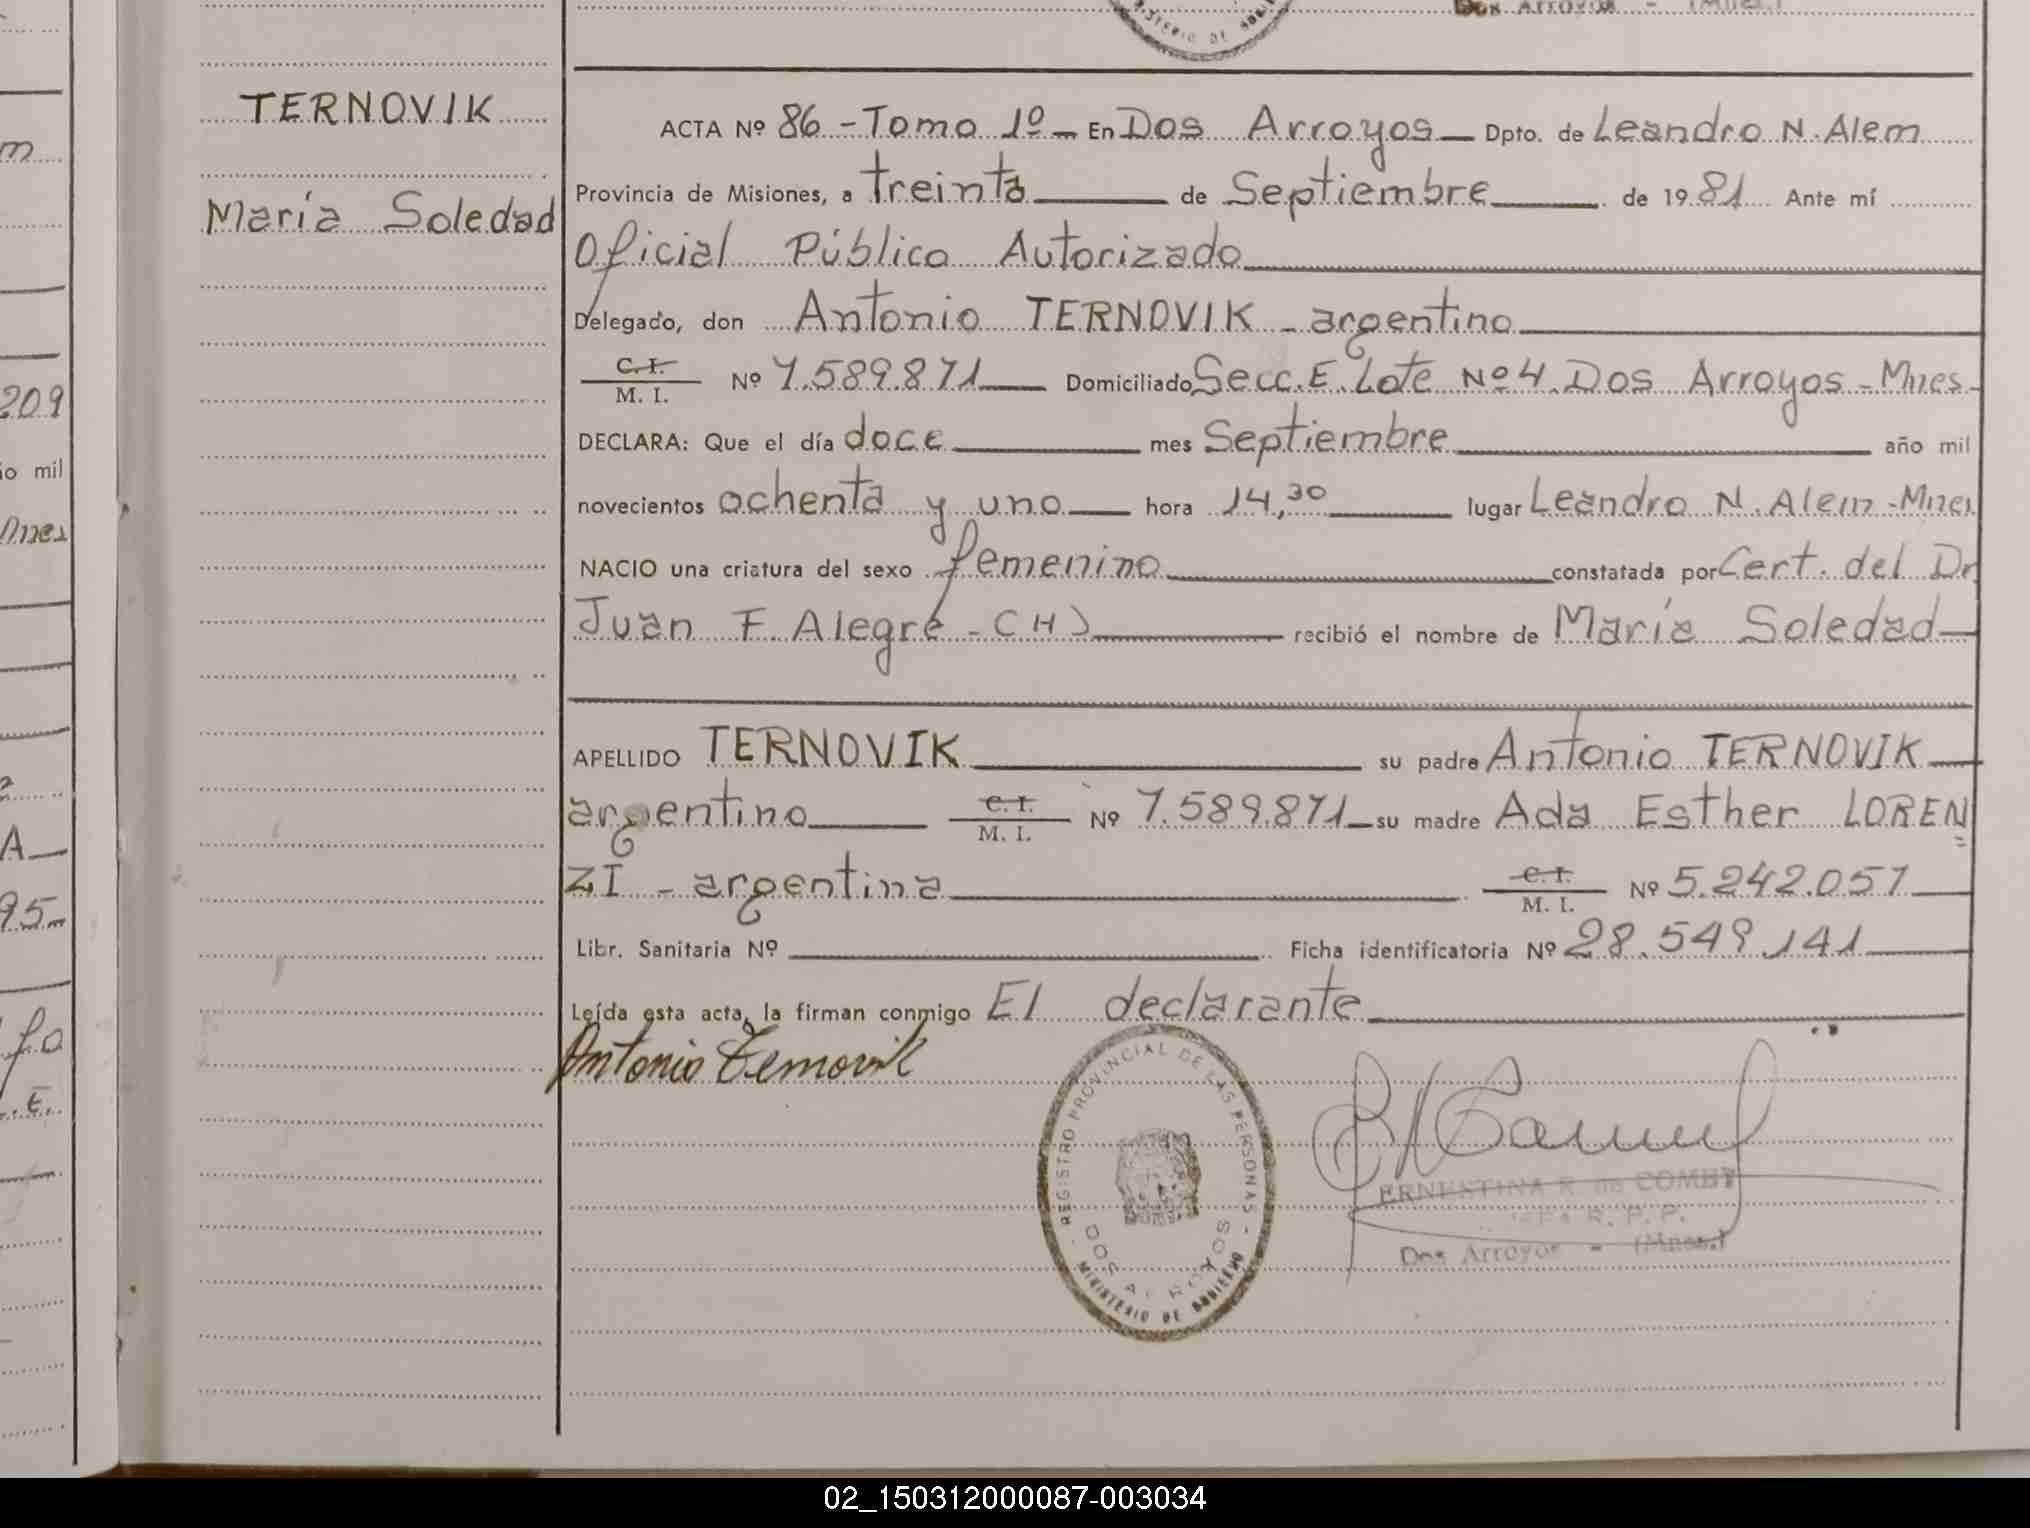 Dos Arroyos - (Mnes.)
MINISTERIO DE
TERNOVIK
María Soledad
ACTA Nº 86 - Tomo 1º - En Dos Arroyos Dpto. de Leandro N. Alem
Provincia de Misiones, a treinta de Septiembre de 1981 Ante mí
Oficial Público Autorizado
Delegado, don Antonio TERNOVIK - argentino
C. I.
M. I. Nº 7.589.871 Domiciliado Secc. E. Lote Nº 4. Dos Arroyos - Mnes -
DECLARA: Que el día doce mes Septiembre año mil
novecientos ochenta y uno hora 14,30 lugar Leandro N. Alem - Mnes
NACIO una criatura del sexo femenino constatada por Cert. del Dr
Juan F. Alegre - (H) recibió el nombre de María Soledad
APELLIDO TERNOVIK su padre Antonio TERNOVIK
argentino C. I.
M. I. Nº 7.589.871 su madre Ada Esther LOREN=
ZI - argentina C. I.
M. I. Nº 5.242.057
Libr. Sanitaria Nº Ficha identificatoria Nº 28.549.141
Leída esta acta, la firman conmigo El declarante
Antonio Ternovik
REGISTRO PROVINCIAL DE LAS PERSONAS
DOS ARROYOS
MINISTERIO DE GOBIERNO
ERNESTINA R. de
R. P. P.
Dos Arroyos - (Mnes.)
209
io mil
Mnes
A
95
02_150312000087-003034